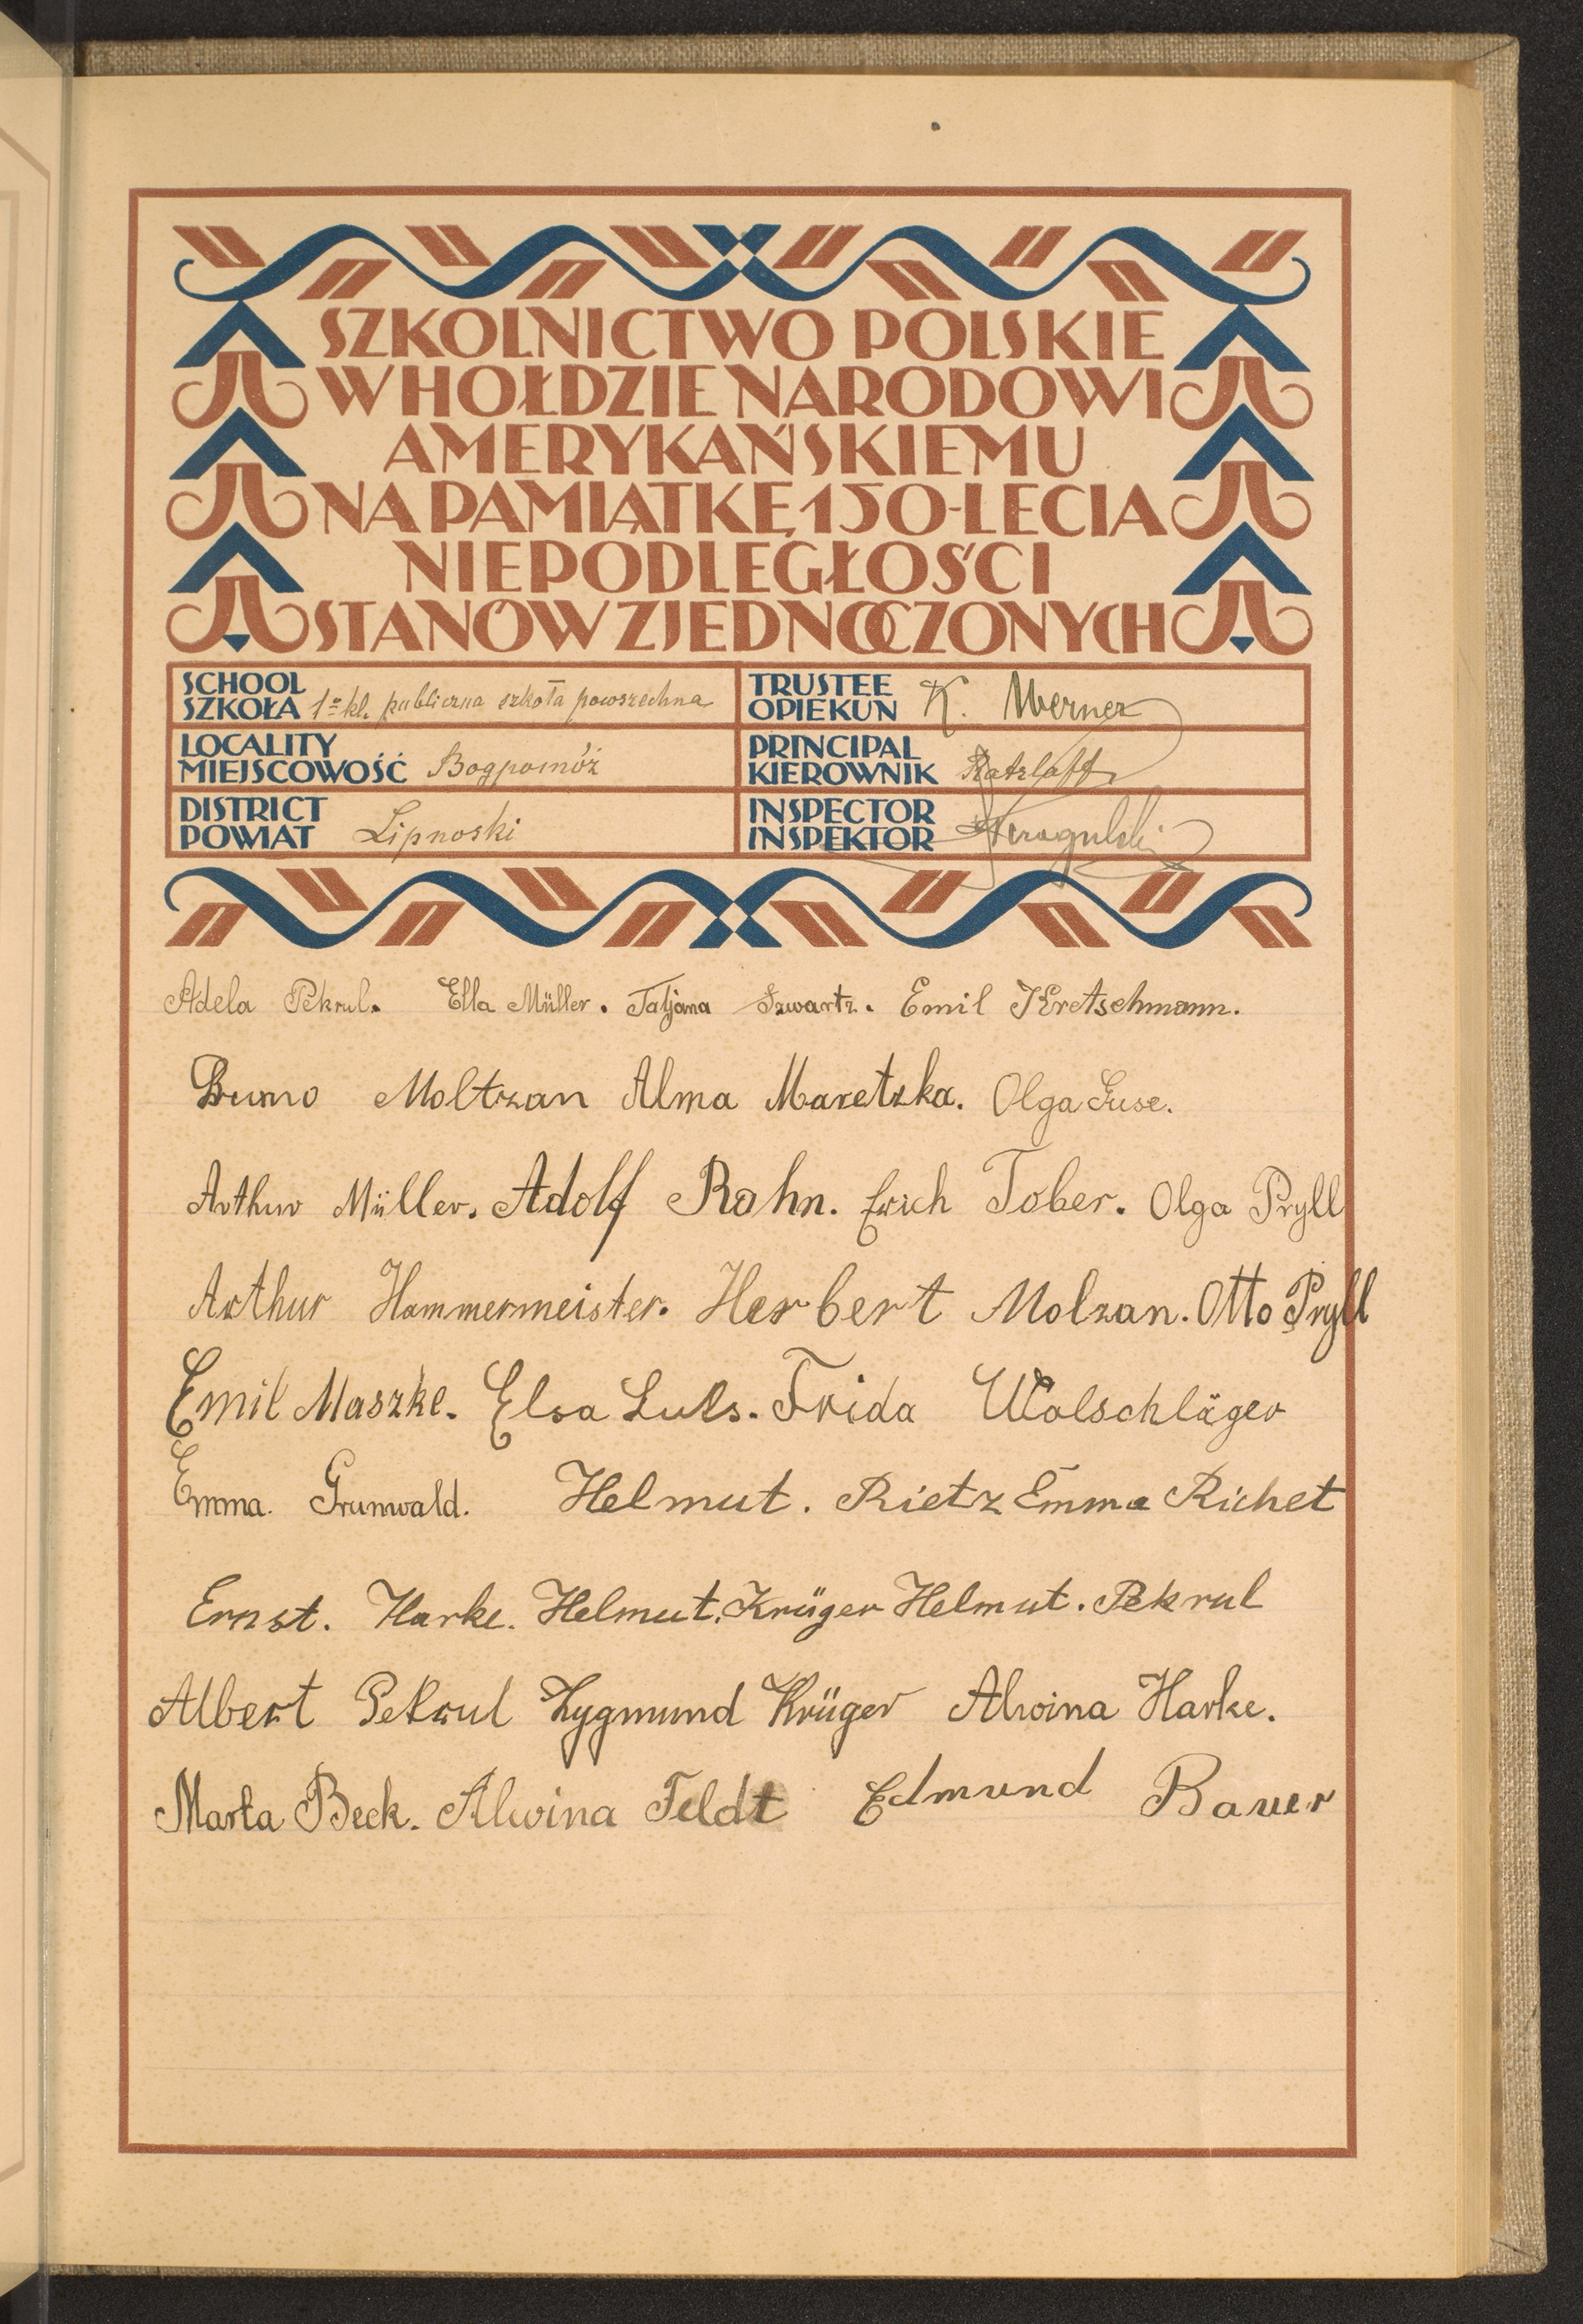 SZKOLNICTWO POLSKIE
W HOŁDZIE NARODOWI
AMERYKAŃSKIEMU
NA PAMIĄTKĘ 150-LECIA
NIEPODLEGŁOŚCI
STANÓW ZJEDNOCZONYCH
SCHOOL
SZKOŁA 1-kl. publiczna szkoła powszechna
TRUSTEE
OPIEKUN K. Werner
LOCALITY
MIEJSCOWOŚĆ Bogpomóż
PRINCIPAL
KIEROWNIK Ratzlaff
DISTRICT
POWIAT Lipnoski
INSPECTOR
INSPEKTOR
Adela Pekrul. Ella Müller. Tatjana Szwartz. Emil Kretschmann.
Bruno Moltzan Alma Maretzka. Olga Guse.
Arthur Müller. Adolf Rahn. Erich Tober. Olga Pryll
Arthur Hammermeister. Herbert Molzan. Otto Pryll
Emil Maszke. Elsa Luks. Frida Wolschläger
Emma. Grunwald. Helmut. Rietz Emma Richet
Ernst. Harke. Helmut. Krüger Helmut. Pekrul
Albert Pekrul Zygmund Krüger Alwina Harke.
Marta Beck. Alwina Feldt Edmund Bauer